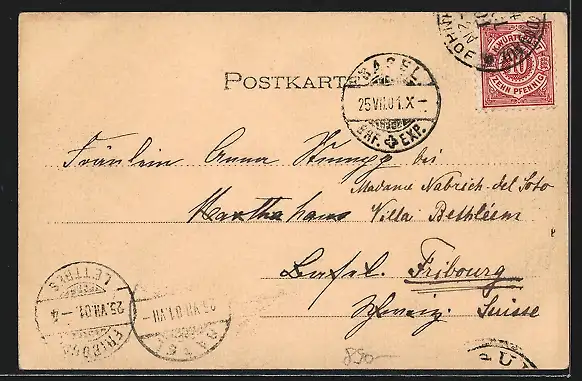 K. WÜRTT.
ZEHN PFENNIG
10
HOF
POSTKARTE
BASEL
25.VII.01.X-
BRF. EXP.
Fräulein Anna Stumpp bei
Madame Nabrich-del Soto
Marthahaus Villa Bethléem
Basel. Fribourg
Schweiz. Suisse
LETTRES
25.VII.01.-4
FRIBOURG
25.VII.01.VII-
BASEL
890-